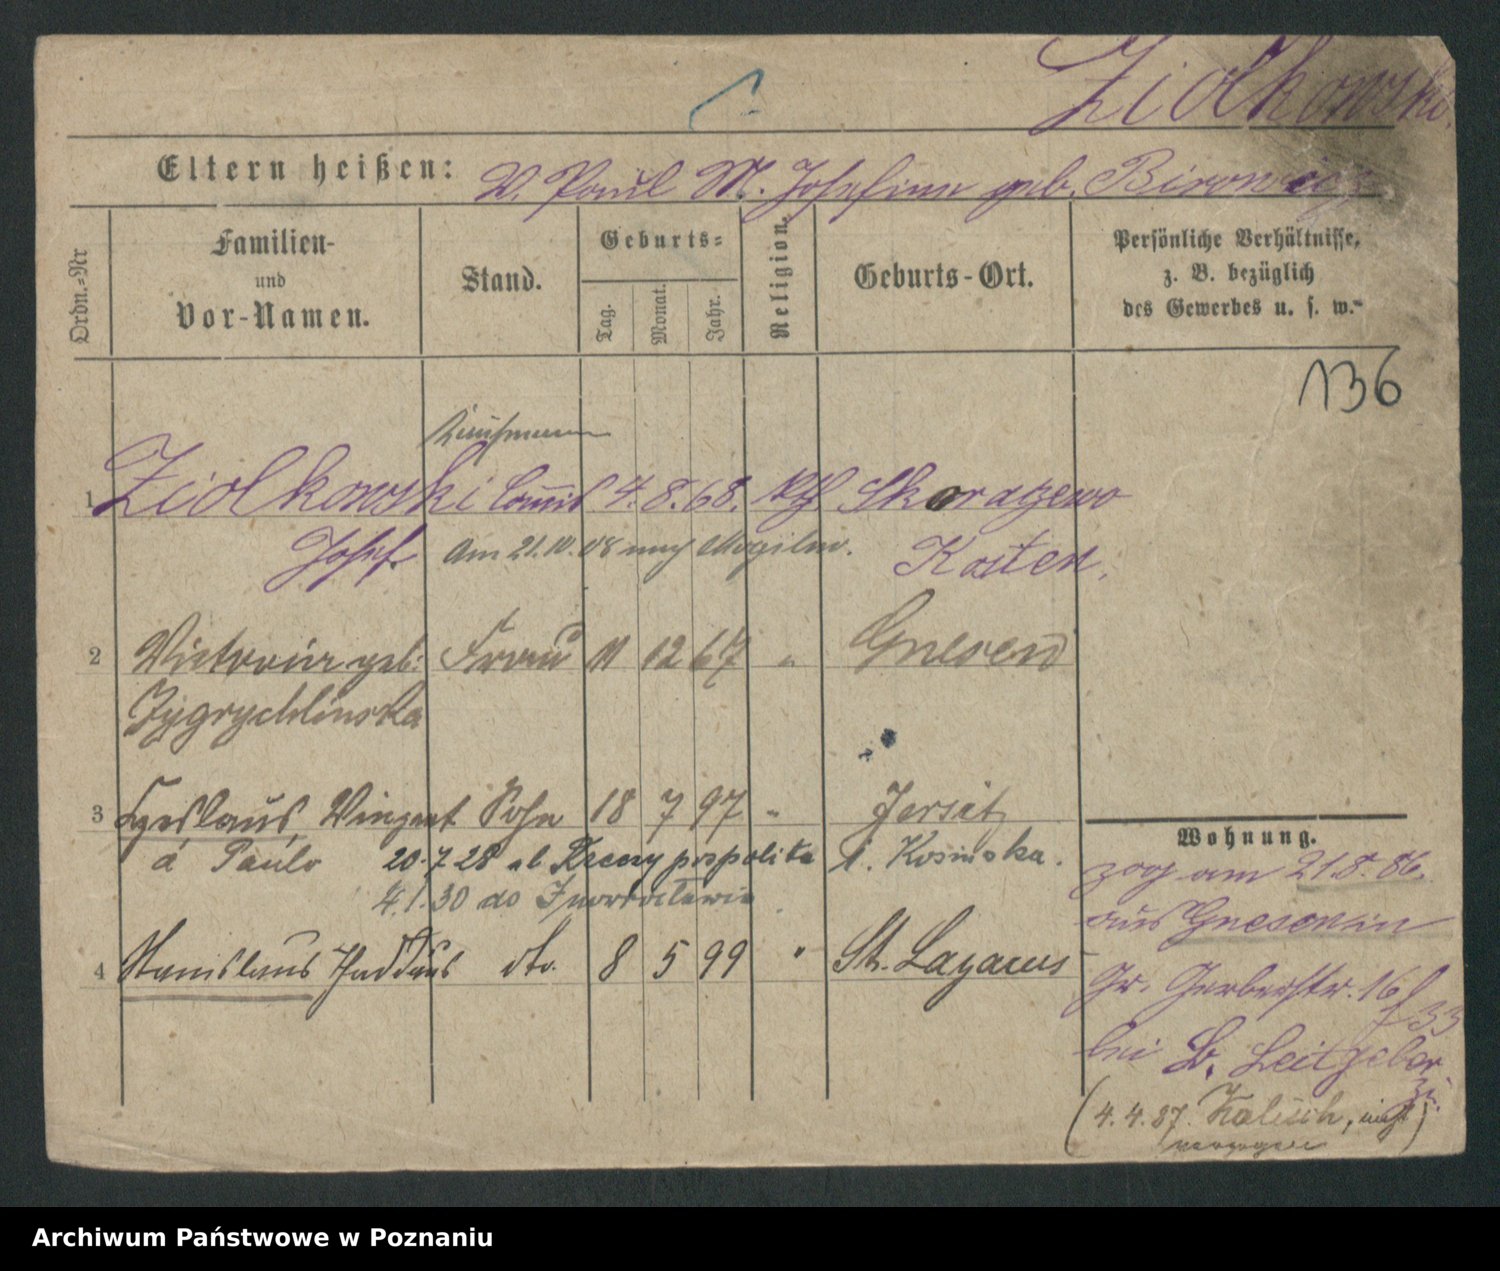 Ziolkowski.
Eltern heißen: V. Paul M. Josefine geb. Bironwicz
Ordn.-Nr
Familien-
und
Vor-Namen.
Stand.
Geburts-
Tag.
Monat.
Jahr.
Religion.
Geburts-Ort.
Persönliche Verhältnisse,
z. B. bezüglich
des Gewerbes u. s. w.
136
Kaufmann
1 Ziolkowski Commis 4. 8. 68. kth
Josef. am 21.10.08 nach Mogilno. Kosten.
2 Victoria geb: Frau 11 12 67 " Gnesen
Zygrychlinska
3 Czeslaus, Vinzent Sohn 18 7 97 " Jersitz
á Paulo 20.7.28 ob. Rzeczypospolita 1. Kosinska.
4.1.30 do Inowrocławia
4 Stanislaus Thaddäus dto. 8 5 99 " St. Lazarus
Wohnung.
zog am 21.8.86.
aus Gnesen in
Gr. Gerberstr. 16
33
bei B. Leitgeber
zu.
(4.4.87. Kalisch, nicht)